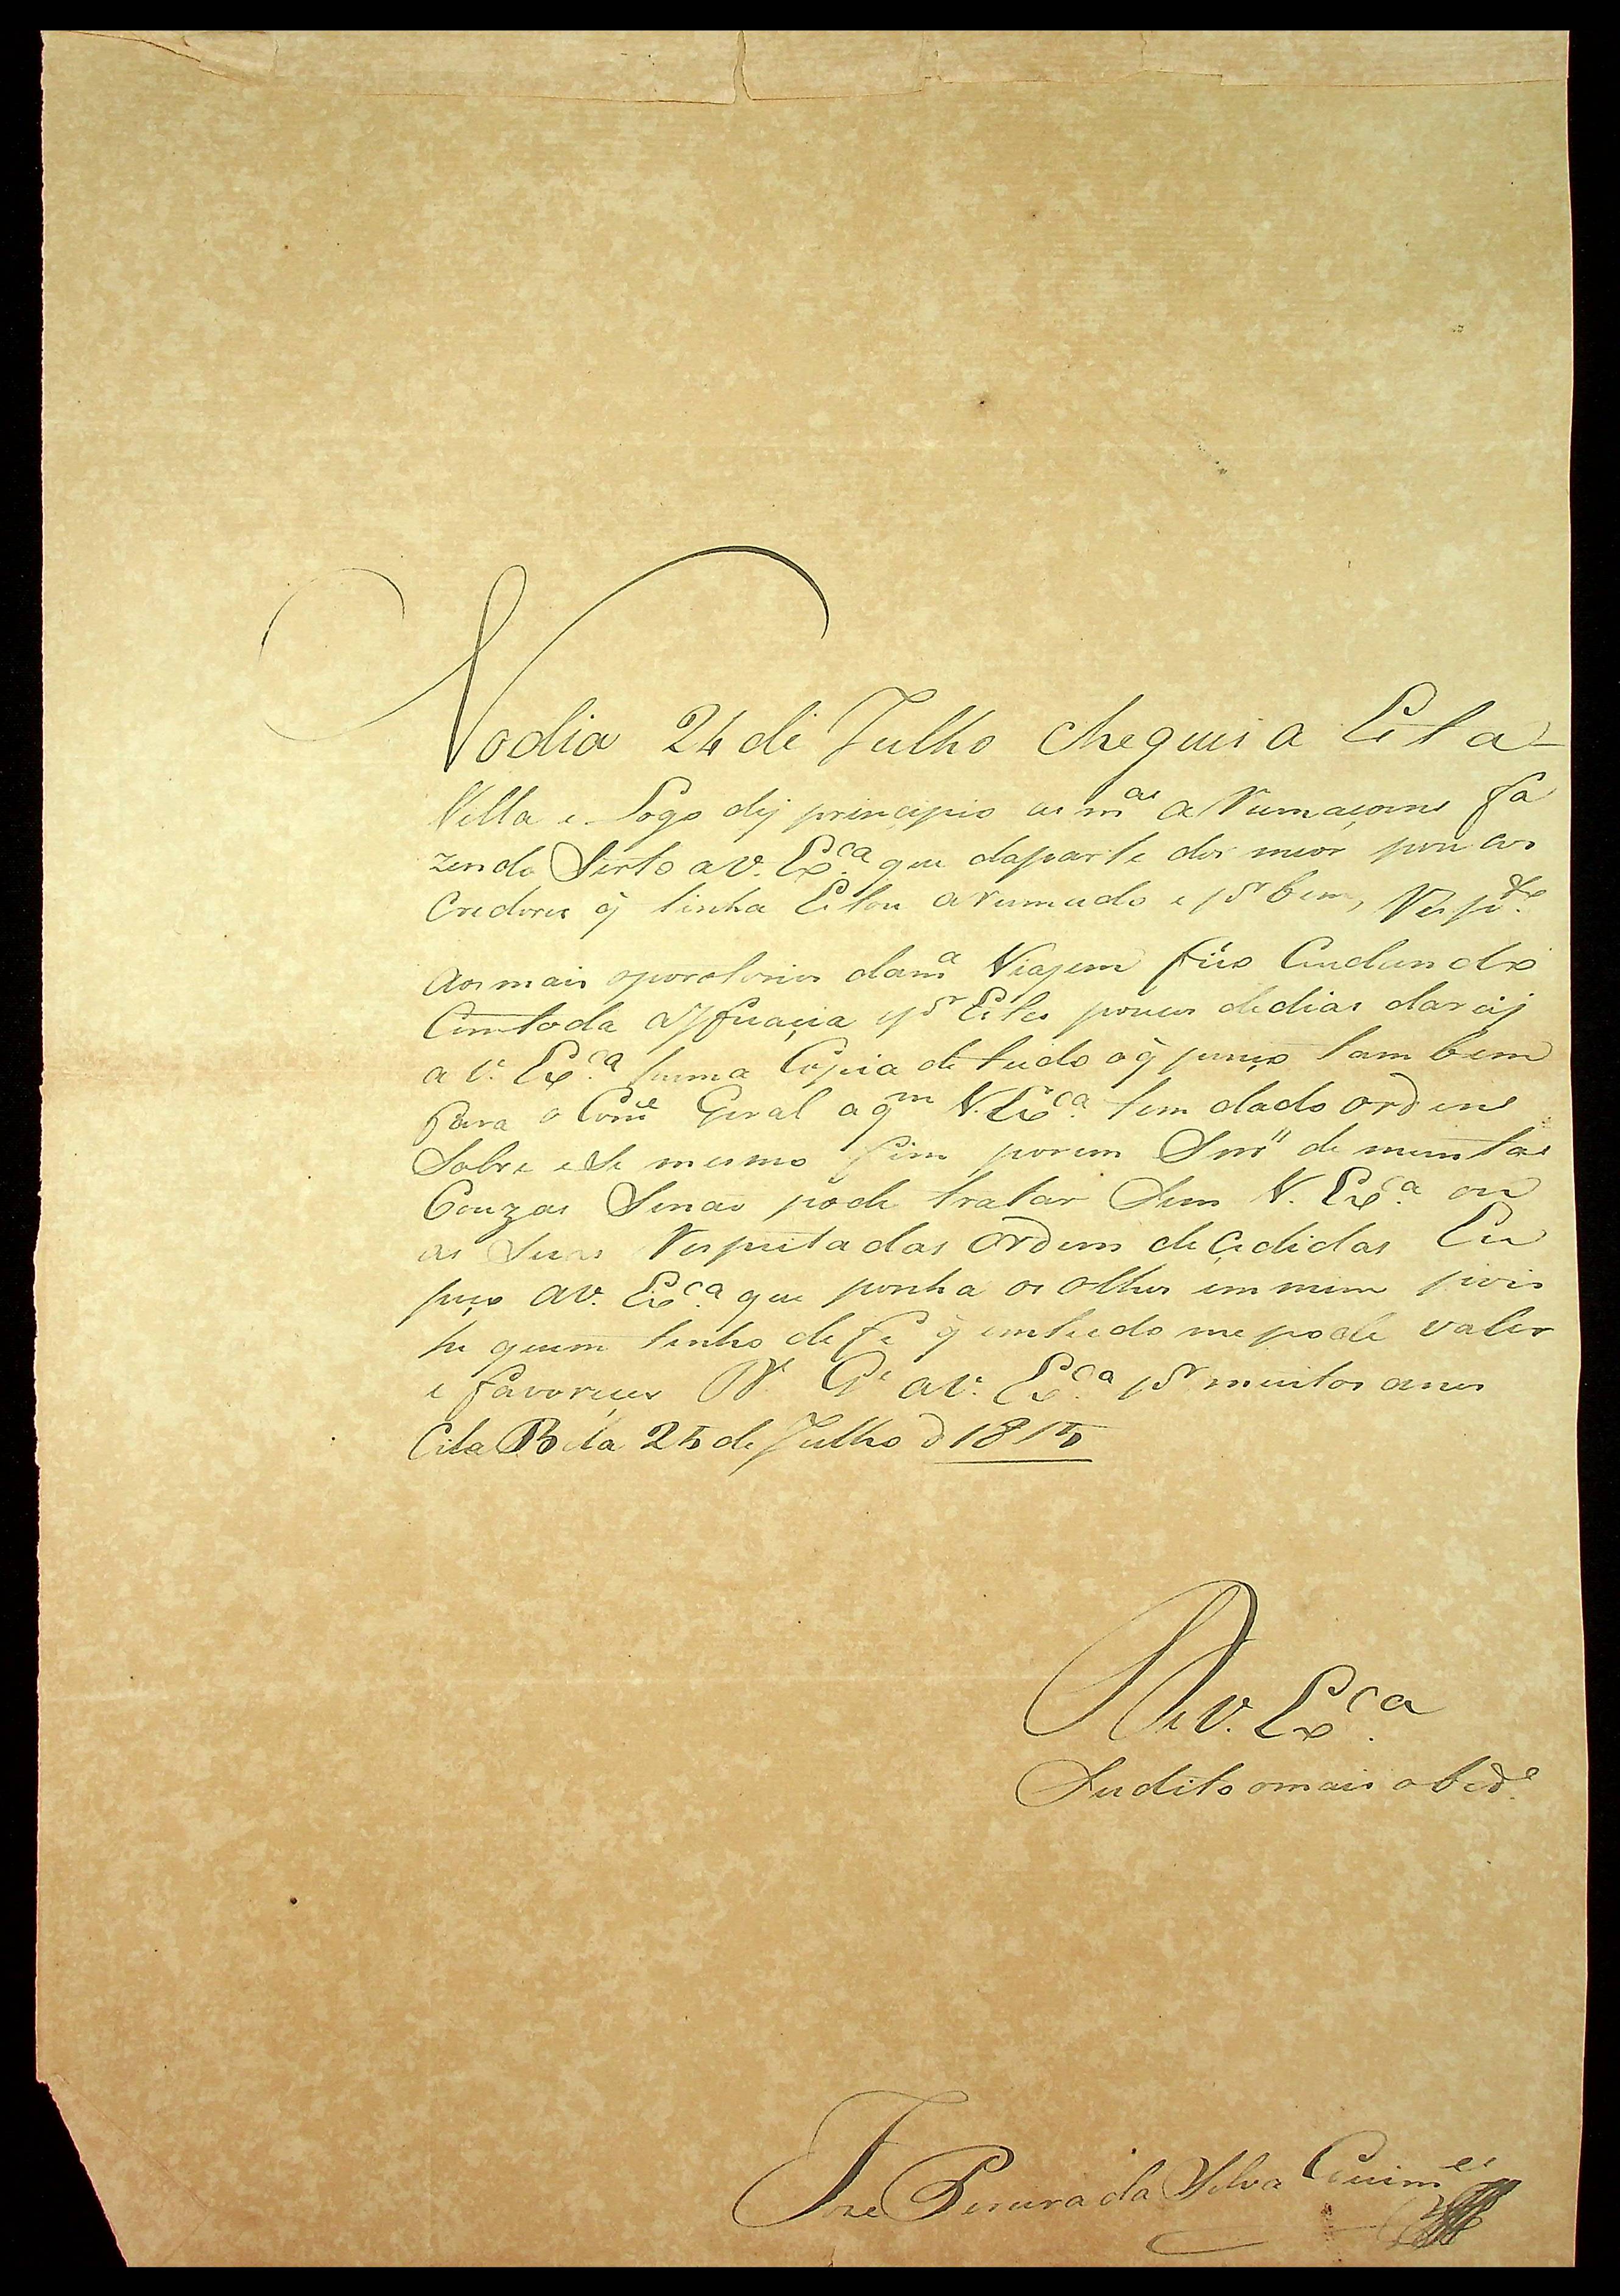 No dia 24 de Julho cheguei a Esta
Villa e Logo dij principio as m.as aRumaçoins fa
zendo Serto a V. Ex.ca que daparte dos meos poucos
Credores q̃ tinha Estou arumado e p.r bem, Resp.de
Aos mais oporetorios dam.a Viajem fico Cuidando
Com toda a eficacia e p.r Estes poucos de dias darej
a V. Ex.ca huma Copia de tudo o q̃ junto tambem
Para o Com.e Geral a q.m V. Ex.ca tem dado ordens
Sobre este mesmo fim porem Snr̃ de muntas
Couzas Senão pode tratar Sem V. Ex.ca ou
as Suas Respeitadas Ordens decedidas Eu
peço a V. Ex.ca que ponha os olhos em mim pois
he quem tenho de fe q̃ em tudo me pode valer
e favoreçer D.s G.e a V. Ex.ca p.r muitos anos
Bela 25 de Julho d 1815
De V. Ex.ca
Sudito omais obed.e
Joze Pereira da Silva Guim.es